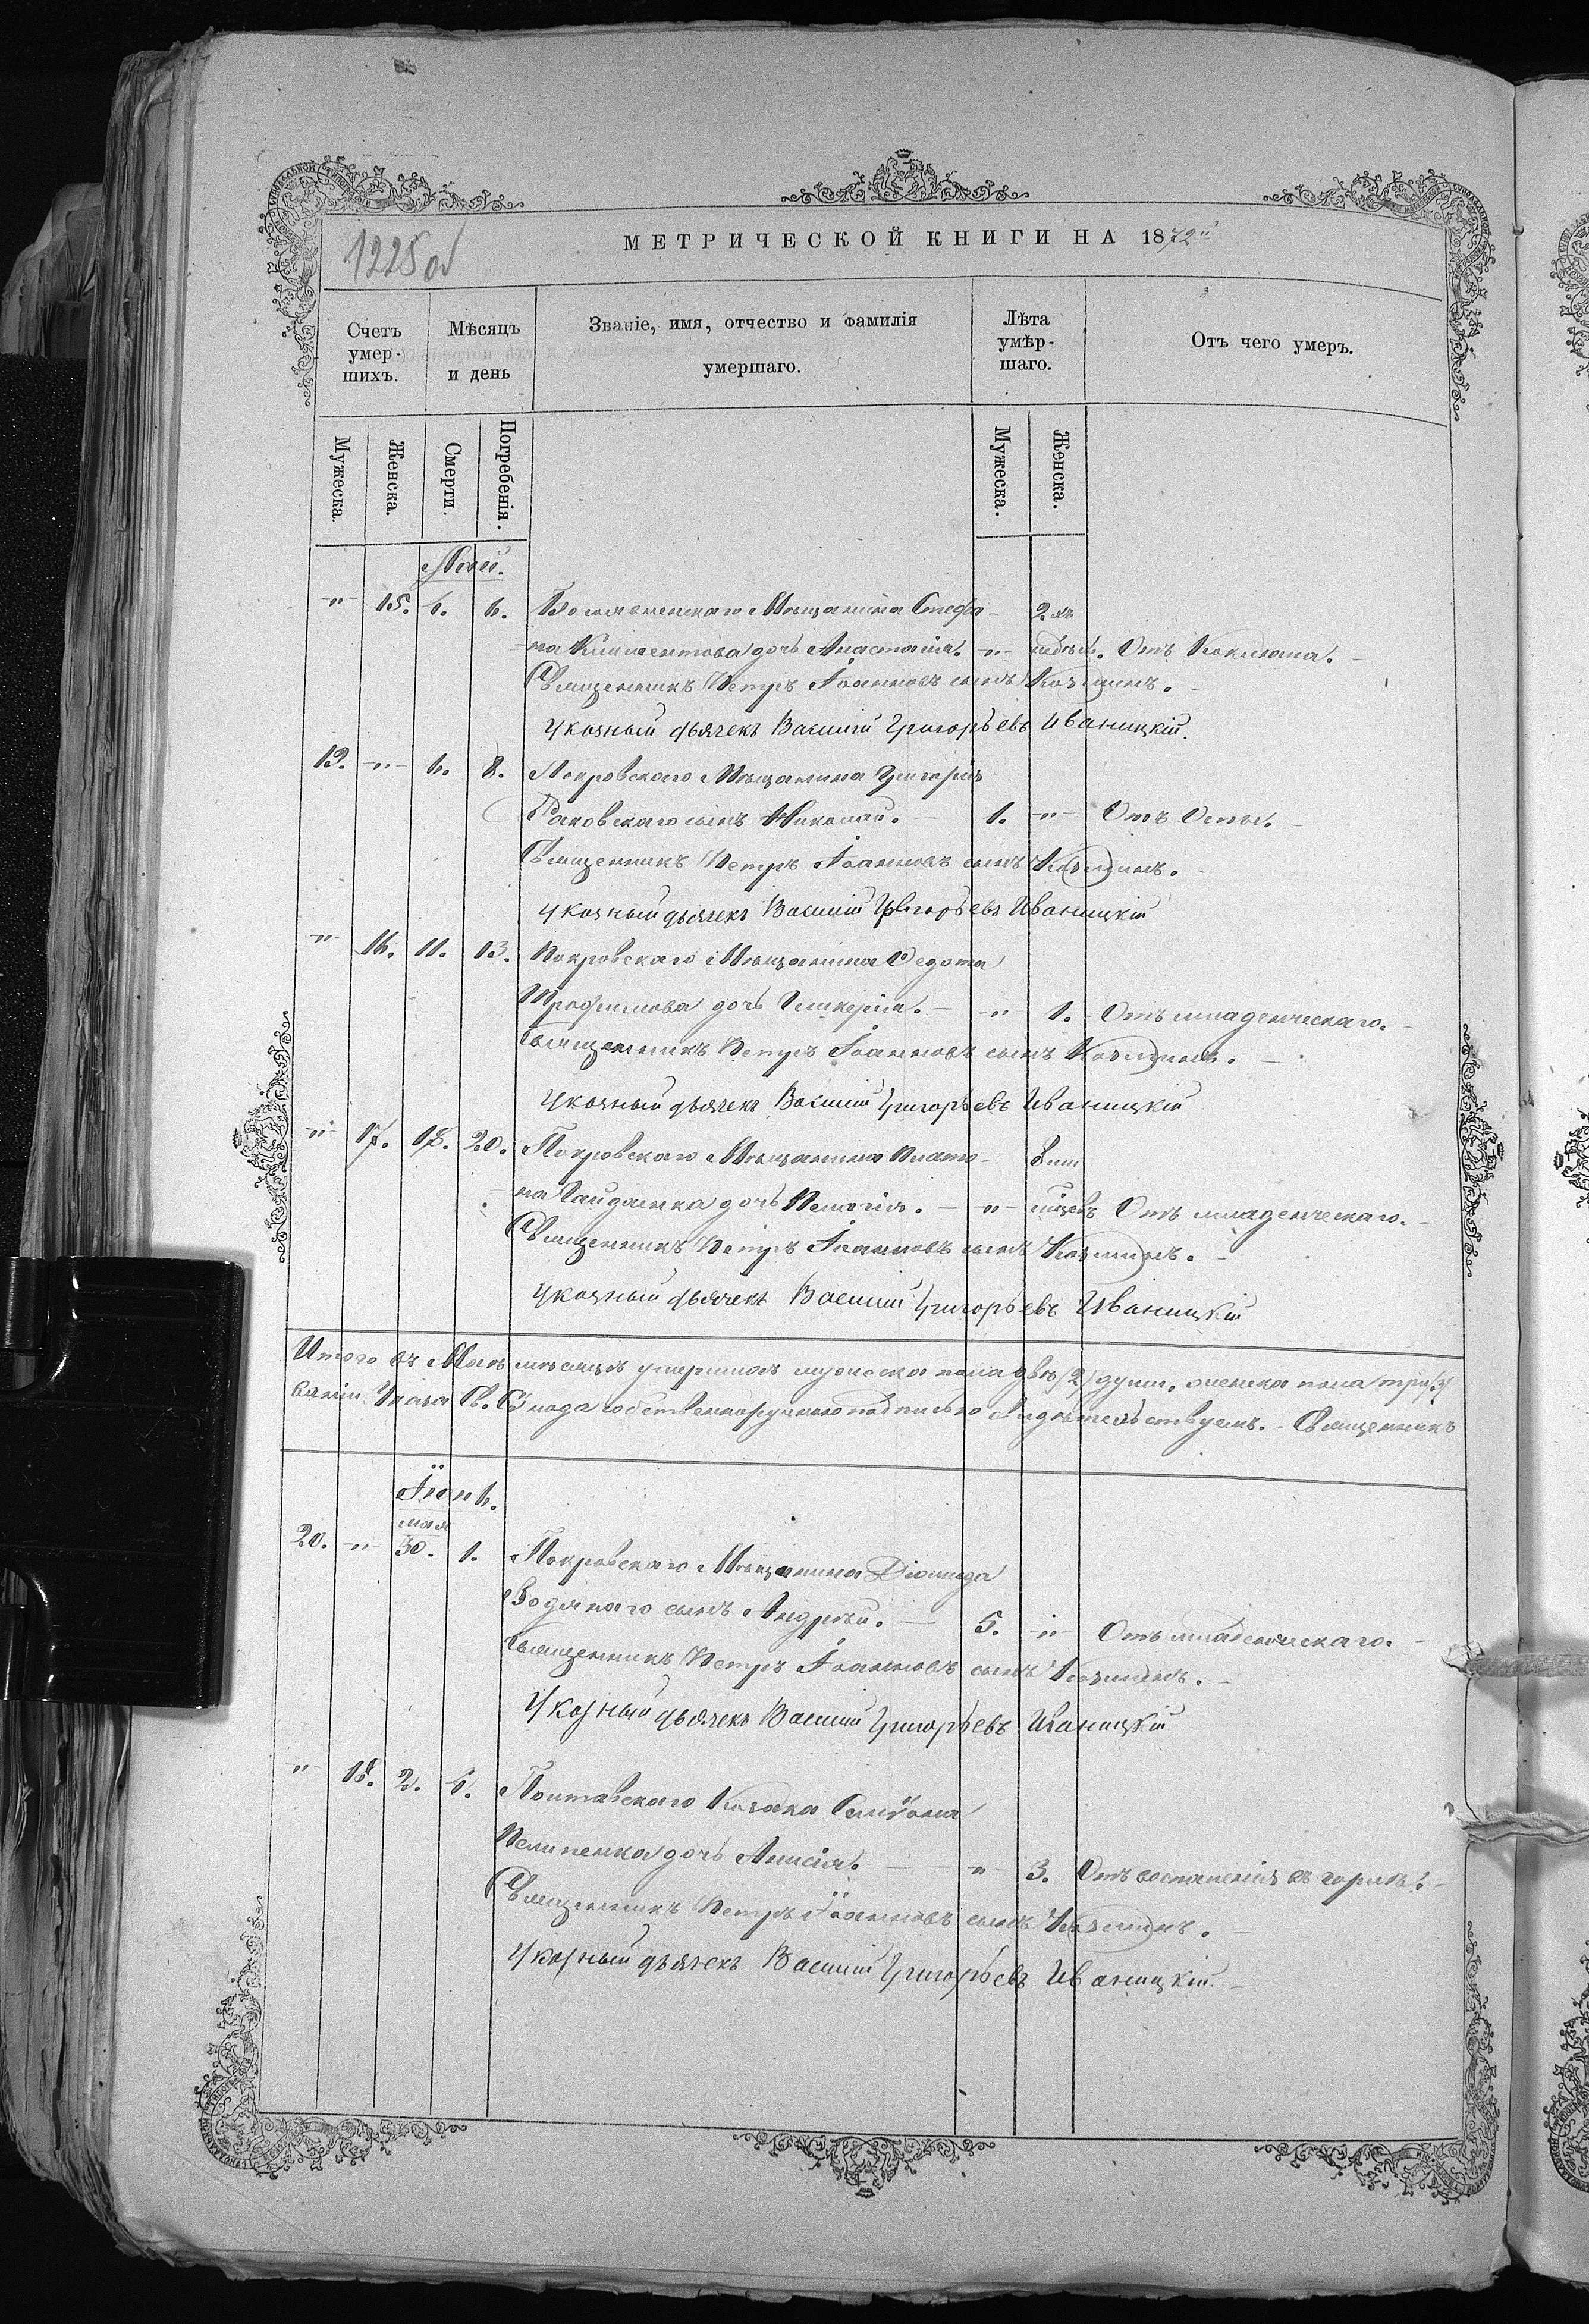 1225 об
МЕТРИЧЕСКОЙ КНИГИ НА 1872й
Счетъ умер-шихъ.
Мѣсяцъ и день
Званіе, имя, отчество и фамилія умершаго.
Лѣта умѣр-шаго.
Отъ чего умеръ.
Мужеска.
Женска.
Смерти.
Погребенія.
Мужеска.
Женска.
Май.
-„- 15. 6. 6. Мѣщанина Стефа- 2.хъ
на Климентова дочь Анастасія. -„- Отъ Коклюша.
Священникъ Петръ Іоанновъ сынъ Козминъ.
Указный дьячекъ Василій Григорьевъ Иваницкій.
19. -„- 6. 8. Покровскаго Мѣщанина Григорія
Раковскаго сынъ Николай. - 1. -„- Отъ Оспы.
Священникъ Петръ Іоанновъ сынъ Козминъ.
Указный дьячекъ Василій Григорьевъ Иваницкій
-„- 16. 11. 13. Покровскаго Мѣщанина Федота
Трофимова дочь Гликерія. - -„- 1. Отъ младенческаго.
Священникъ Петръ Іоанновъ сынъ Козминъ.
Указный дьячекъ Василій Григорьевъ Иваницкій
-„- 17. 18. 20. Покровскаго Мѣщанина Плато-
на Гайдаенка дочь Пелагія. - -„- Отъ младенческаго.
Священникъ Петръ Іоанновъ сынъ Козминъ.
Указный дьячекъ Василій Григорьевъ Иваницкій
Итого въ Маѣ мѣсяцѣ умершихъ мужеска пола двѣ (2) души, женска пола три (3)
ваніи Указа Св. Сѵнода собственноручною подписью свидѣтельствуемъ. - Священникъ
Іюнь.
мая
20. -„- 30. 1. Покровскаго Мѣщанина Діомида
Водянаго сынъ Андрей. - 5. -„- Отъ младенческаго.
Священникъ Петръ Іоанновъ сынъ Козминъ.
Указный дьячекъ Василій Григорьевъ Иваницкій
-„- 18. 2. 6. Полтавскаго Козака Самуила
Пелипенка дочь Анисія. - -„- 3. Отъ воспаленія въ горлѣ.
Священникъ Петръ Іоанновъ сынъ Козминъ.
Указный дьячекъ Василій Григорьевъ Иваницкій.